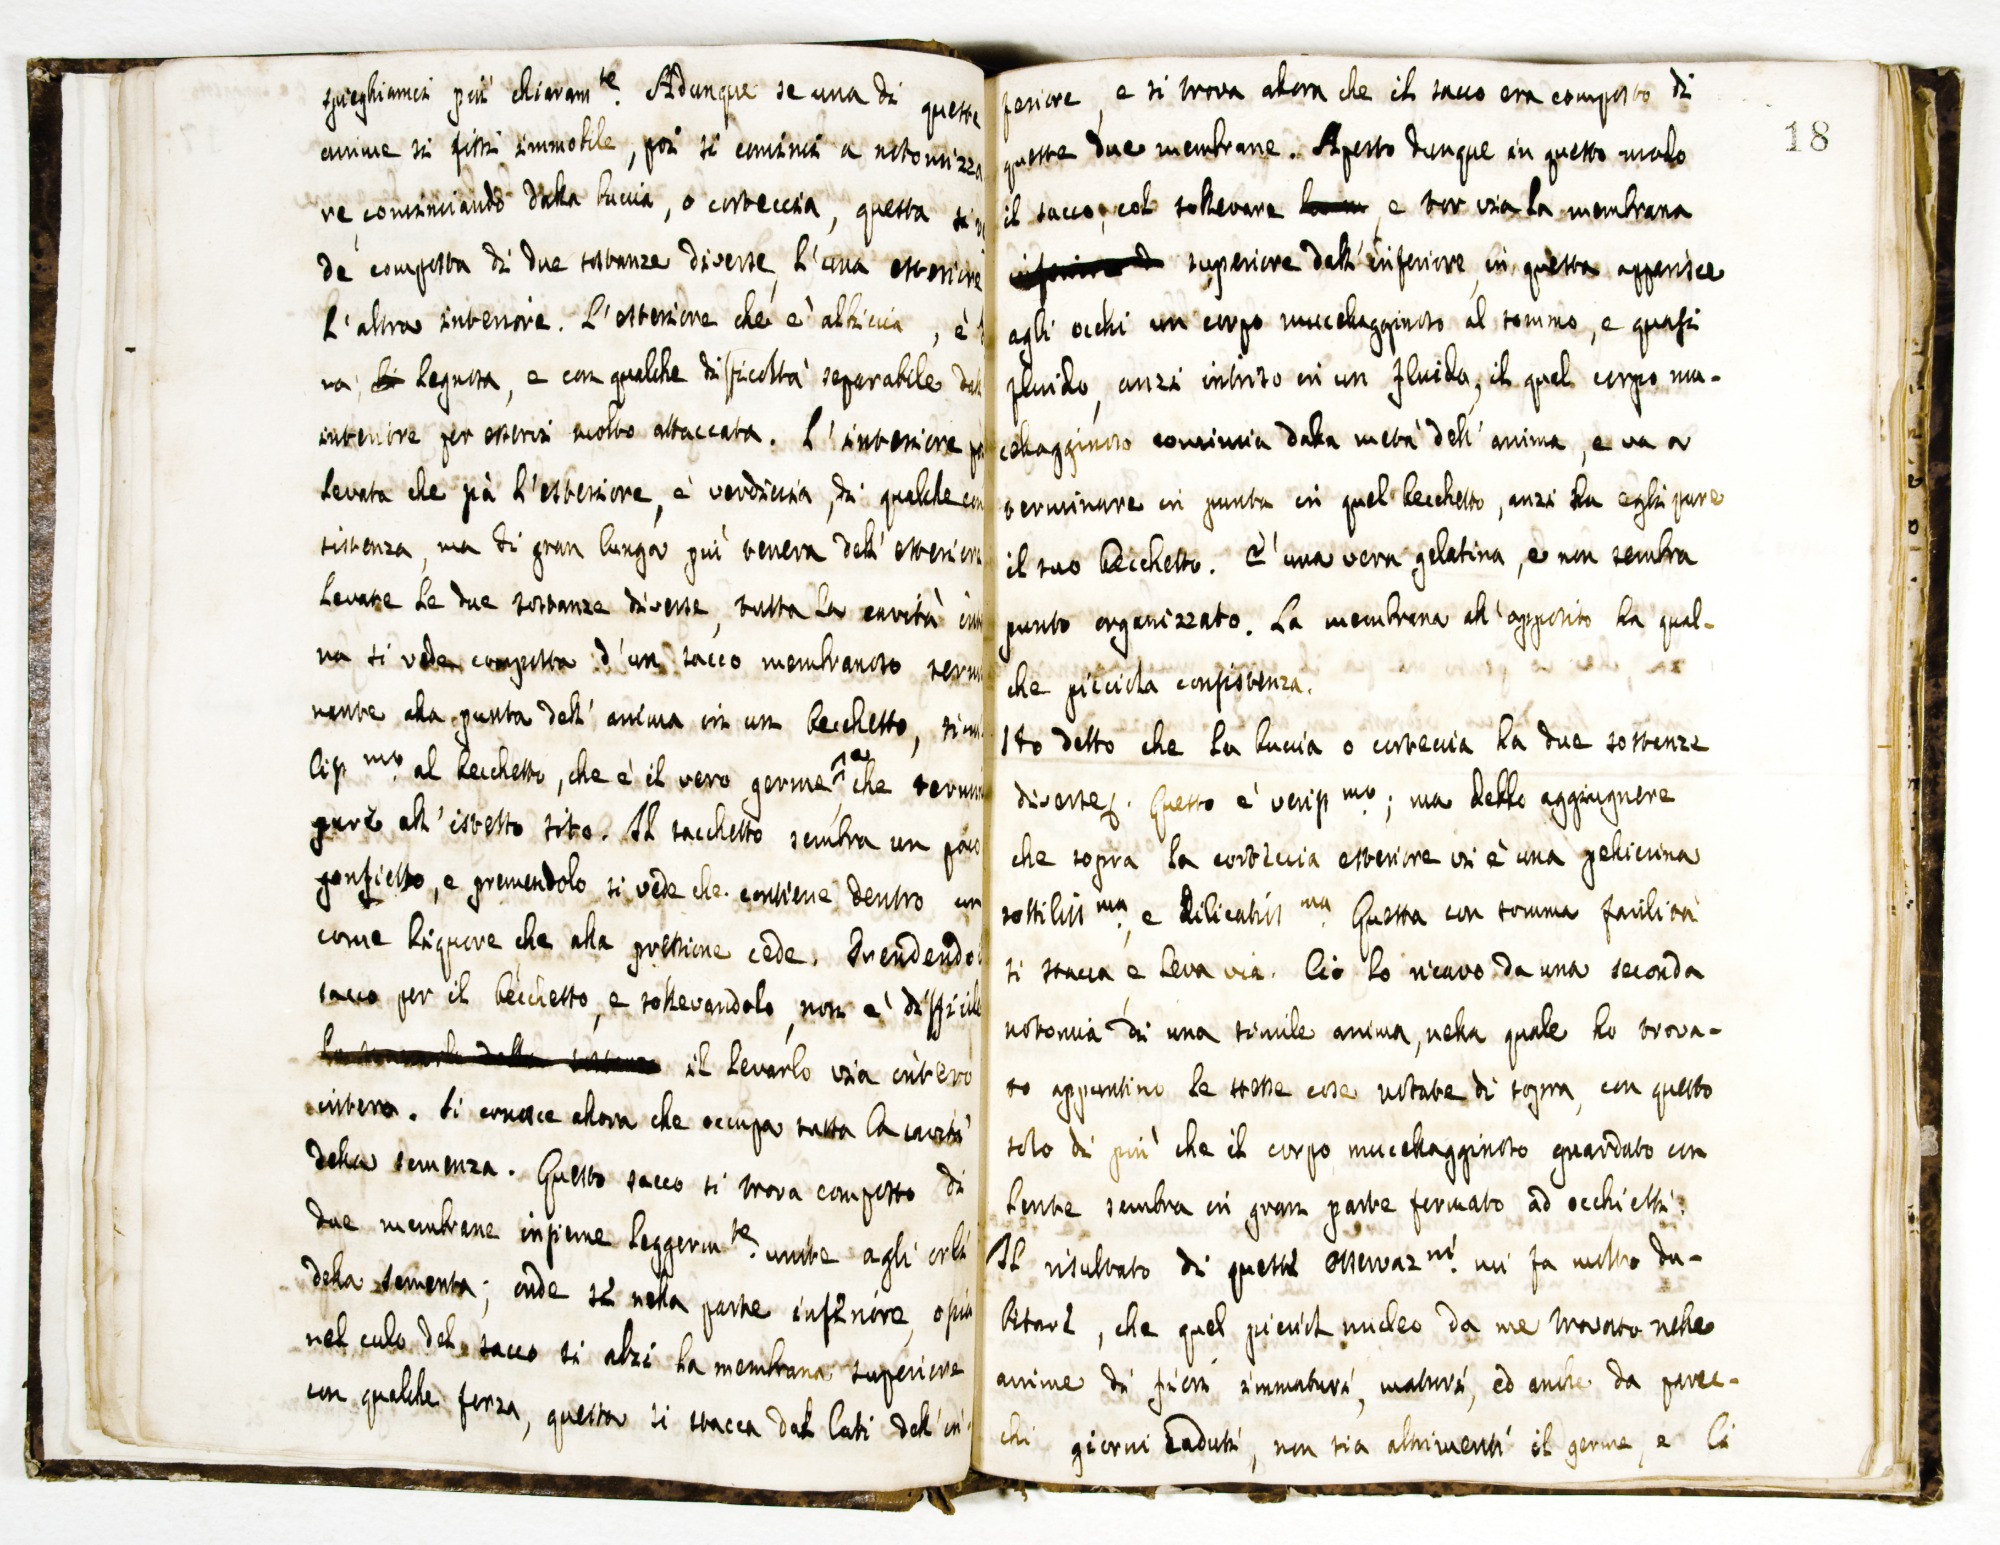 spieghiamci più chiaram.te Adunque se una di queste
anime si fissi immobile, poi si cominci a notomizza
re, cominciando dalla buccia, o corteccia, questa si ve
de composta di due sostanze diverse, l'una esteriore
l'altra interiore. L'esteriore che è albiccia, è
na, legnosa, e con qualche difficoltà separabile dall
interiore per esservi molto attaccata. L'interiore
levata che sia l'esteriore, è verdiccia, di qualche con
sistenza, ma di gran lunga più tenera dell'esteriore
Levate le due sostanze diverse, tutta la cavità inter
na si vede composta d'un sacco membranoso termi
nante alla punta dell'anima in un becchetto, simi
lis.mo al becchetto, che è il vero germe, che termina
pure all'istesso sito. Il sacchetto sembra un poco
gonfietto, e premendolo si vede che contiene dentro un
come liquore che alla pressione cede. Prendendo il
sacco per il becchetto, e sollevandolo, non è difficile
il levarlo via intero
intero. Si conosce allora che occupa tutta la cavità
della semenza. Questo sacco si trova composto di
due membrane insieme leggerm.te unite agli orli
della sementa; onde se nella parte inferiore, o sia
nel culo del sacco si alzi la membrana superiore
con qualche forza, questa si stacca dal lati dell'in-
feriore, e si trova allora che il sacco era composto di
queste due membrane. Aperto dunque in questo modo
il sacco, col sollevare, e tor via la membrana
superiore dell'inferiore, in questa apparisce
agli occhi un corpo muccellagginoso al sommo, e quasi
fluido, anzi intriso in un fluido, il qual corpo mu-
cellagginoso comincia dalla metà dell'anima, e va a
terminare in punta in quel becchetto, anzi ha egli pure
il suo becchetto. È una vera gelatina, e non sembra
punto organizzato. La membrana all'opposito ha qual-
che picciola consistenza.
Ho detto che la buccia o corteccia ha due sostanze
diverse. Questo è veris.mo; ma debbo aggiugnere
che sopra la corteccia esteriore vi è una pellicina
sottiliss.ma, e dilicatiss.ma Questa con somma facilità
si stacca e leva via. Ciò lo ricavo da una seconda
notomia di una simile anima, nella quale ho trova-
to appuntino le stesse cose notate di sopra, con questo
solo di più che il corpo muccellagginoso guardato con
lente sembra in gran parte formato ad occhietti.
Il risultato di queste osservaz.ni mi fa molto du-
bitare, che quel picciol nucleo da me trovato nelle
anime di fiori immaturi, maturi, ed anche da parec-
chi giorni caduti, non sia altrimenti il germe, e li
18